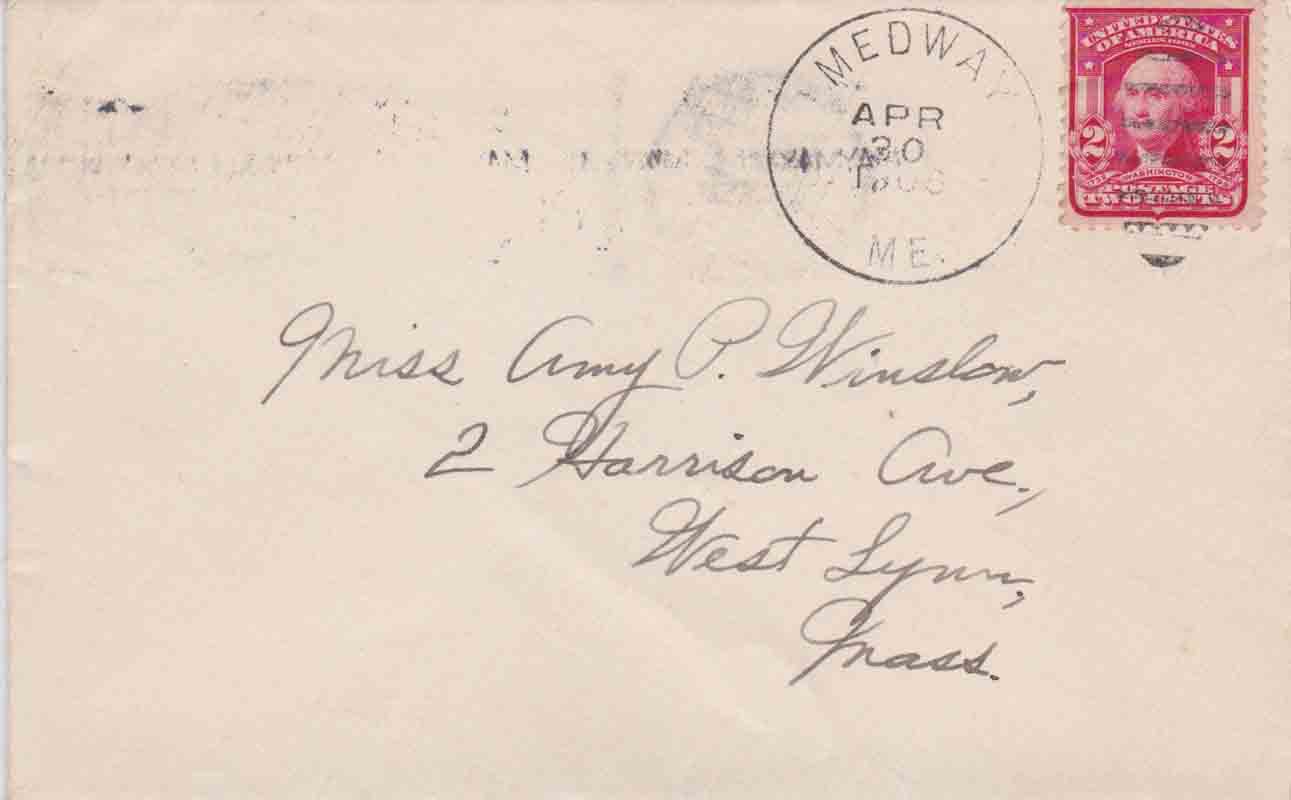 MEDWAY
APR
30
1906
ME.
UNITED STATES
OF AMERICA
SERIES 1902
2 2
1732 WASHINGTON 1799
POSTAGE
TWO CENTS
Miss Amy P. Winslow,
2 Harrison Ave.,
West Lynn,
Mass.